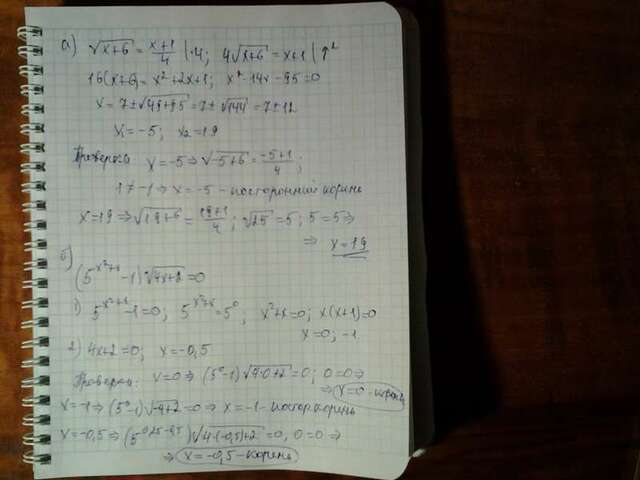 а) √x+6 = x+1/4 |·4; 4√x+6 = x+1 |↑²
16(x+6) = x²+2x+1; x²-14x-95=0
x=7±√49+95 = 7±√144 = 7±12
x₁=-5; x₂=19
Проверка x=-5 ⇒ √-5+6 = -5+1/4;
1≠-1 ⇒ x=-5 - посторонний корень
x=19 ⇒ √19+6 = 19+1/4; √25=5; 5=5 ⇒
⇒ x=19
б)
(5^(x²+x)-1)√4x+2=0
1) 5^(x²+x)-1=0; 5^(x²+x)=5⁰, x²+x=0; x(x+1)=0
x=0; -1
2) 4x+2=0; x=-0,5
Проверка: x=0 ⇒ (5⁰-1)√4·0+2=0; 0=0 ⇒
⇒ x=0 - корень
x=-1 ⇒ (5⁰-1)√-4+2=0 ⇒ x=-1 - постор корень
x=-0,5 ⇒ (5^(0,25-0,5))√4·(-0,5)+2=0, 0=0 ⇒
⇒ x=-0,5 - корень